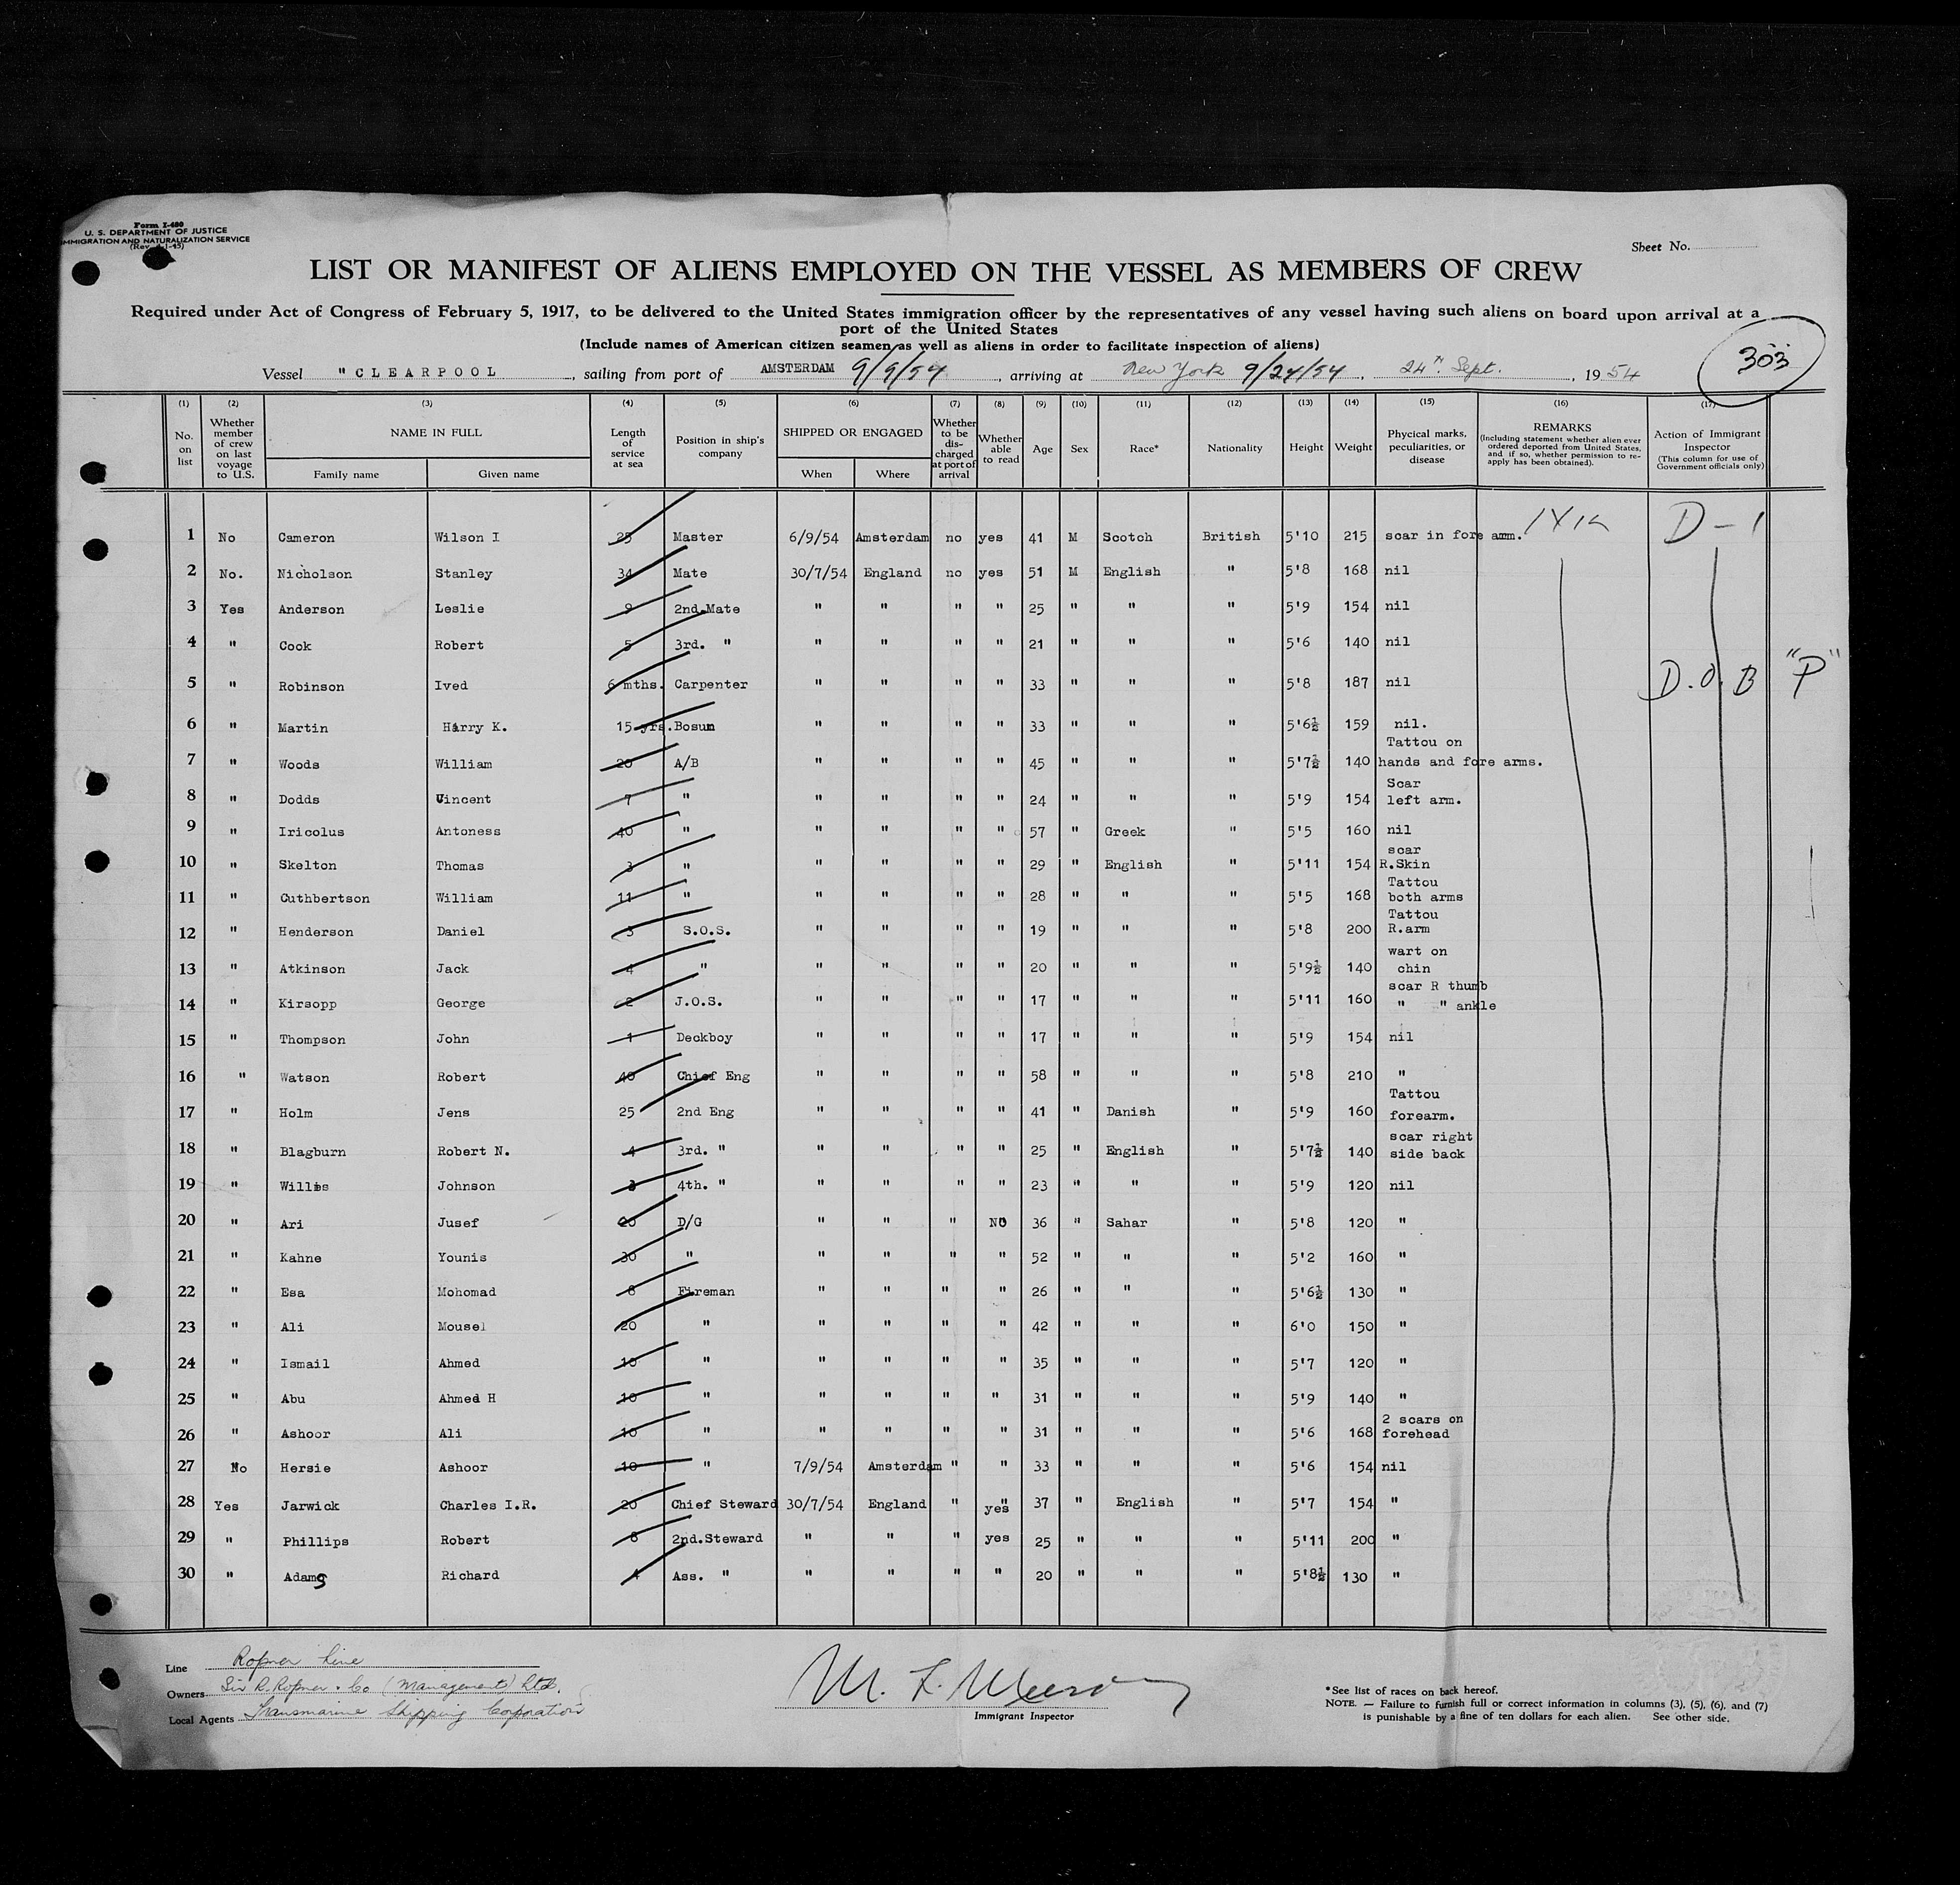 Form I-480
U. S. DEPARTMENT OF JUSTICE
IMMIGRATION AND NATURALIZATION SERVICE
(Rev. 4-1-45)
Sheet No.
LIST OR MANIFEST OF ALIENS EMPLOYED ON THE VESSEL AS MEMBERS OF CREW
Required under Act of Congress of February 5, 1917, to be delivered to the United States immigration officer by the representatives of any vessel having such aliens on board upon arrival at a
port of the United States
(Include names of American citizen seamen as well as aliens in order to facilitate inspection of aliens)
303
Vessel "CLEARPOOL, sailing from port of AMSTERDAM 9/9/54, arriving at New York 9/24/54, 24th. Sept., 1954
(1) (2) (3) (4) (5) (6) (7) (8) (9) (10) (11) (12) (13) (14) (15) (16) (17)
No. on list
Whether member of crew on last voyage to U.S.
NAME IN FULL
Family name Given name
Length of service at sea
Position in ship's company
SHIPPED OR ENGAGED
When Where
Whether to be discharged at port of arrival
Whether able to read
Age
Sex
Race*
Nationality
Height
Weight
Physical marks, peculiarities, or disease
REMARKS
(Including statement whether alien ever ordered deported from United States, and if so, whether permission to reapply has been obtained).
Action of Immigrant Inspector
(This column for use of Government officials only)
1 No Cameron Wilson I 25 Master 6/9/54 Amsterdam no yes 41 M Scotch British 5'10 215 scar in fore arm. D-1
2 No. Nicholson Stanley 34 Mate 30/7/54 England no yes 51 M English " 5'8 168 nil
3 Yes Anderson Leslie 9 2nd.Mate " " " " 25 " " " 5'9 154 nil
4 " Cook Robert 5 3rd. " " " " " 21 " " " 5'6 140 nil
5 " Robinson Ived 6 mths. Carpenter " " " " 33 " " " 5'8 187 nil D.O.B "P"
6 " Martin Harry K. 15 yrs. Bosun " " " " 33 " " " 5'6½ 159 nil.
7 " Woods William 20 A/B " " " " 45 " " " 5'7½ 140 Tattou on hands and fore arms.
8 " Dodds Vincent 7 " " " " " 24 " " " 5'9 154 Scar left arm.
9 " Iricolus Antoness 40 " " " " " 57 " Greek " 5'5 160 nil
10 " Skelton Thomas 3 " " " " " 29 " English " 5'11 154 scar R.Skin
11 " Cuthbertson William 11 " " " " " 28 " " " 5'5 168 Tattou both arms
12 " Henderson Daniel 3 S.O.S. " " " " 19 " " " 5'8 200 Tattou R.arm
13 " Atkinson Jack 4 " " " " " 20 " " " 5'9½ 140 wart on chin
14 " Kirsopp George 2 J.O.S. " " " " 17 " " " 5'11 160 scar R thumb " " ankle
15 " Thompson John 1 Deckboy " " " " 17 " " " 5'9 154 nil
16 " Watson Robert 40 Chief Eng " " " " 58 " " " 5'8 210 "
17 " Holm Jens 25 2nd Eng " " " " 41 " Danish " 5'9 160 Tattou forearm.
18 " Blagburn Robert N. 4 3rd. " " " " " 25 " English " 5'7½ 140 scar right side back
19 " Willis Johnson 3 4th. " " " " " 23 " " " 5'9 120 nil
20 " Ari Jusef 20 D/G " " " NO 36 " Sahar " 5'8 120 "
21 " Kahne Younis 30 " " " " " 52 " " " 5'2 160 "
22 " Esa Mohomad 8 Fireman " " " " 26 " " " 5'6½ 130 "
23 " Ali Mousel 20 " " " " " 42 " " " 6'0 150 "
24 " Ismail Ahmed 10 " " " " " 35 " " " 5'7 120 "
25 " Abu Ahmed H 10 " " " " " 31 " " " 5'9 140 "
26 " Ashoor Ali 10 " " " " " 31 " " " 5'6 168 2 scars on forehead
27 No Hersie Ashoor 10 " 7/9/54 Amsterdam " " 33 " " " 5'6 154 nil
28 Yes Jarwick Charles I.R. 20 Chief Steward 30/7/54 England " " yes 37 " English " 5'7 154 "
29 " Phillips Robert 8 2nd.Steward " " " yes 25 " " " 5'11 200 "
30 " Adams Richard 4 Ass. " " " " " 20 " " " 5'8½ 130 "
Line Ropner Line
Owners Sir R. Ropner & Co (Management) Ltd.
Local Agents Transmarine Shipping Corporation
Immigrant Inspector
*See list of races on back hereof.
NOTE. — Failure to furnish full or correct information in columns (3), (5), (6), and (7)
is punishable by a fine of ten dollars for each alien. See other side.